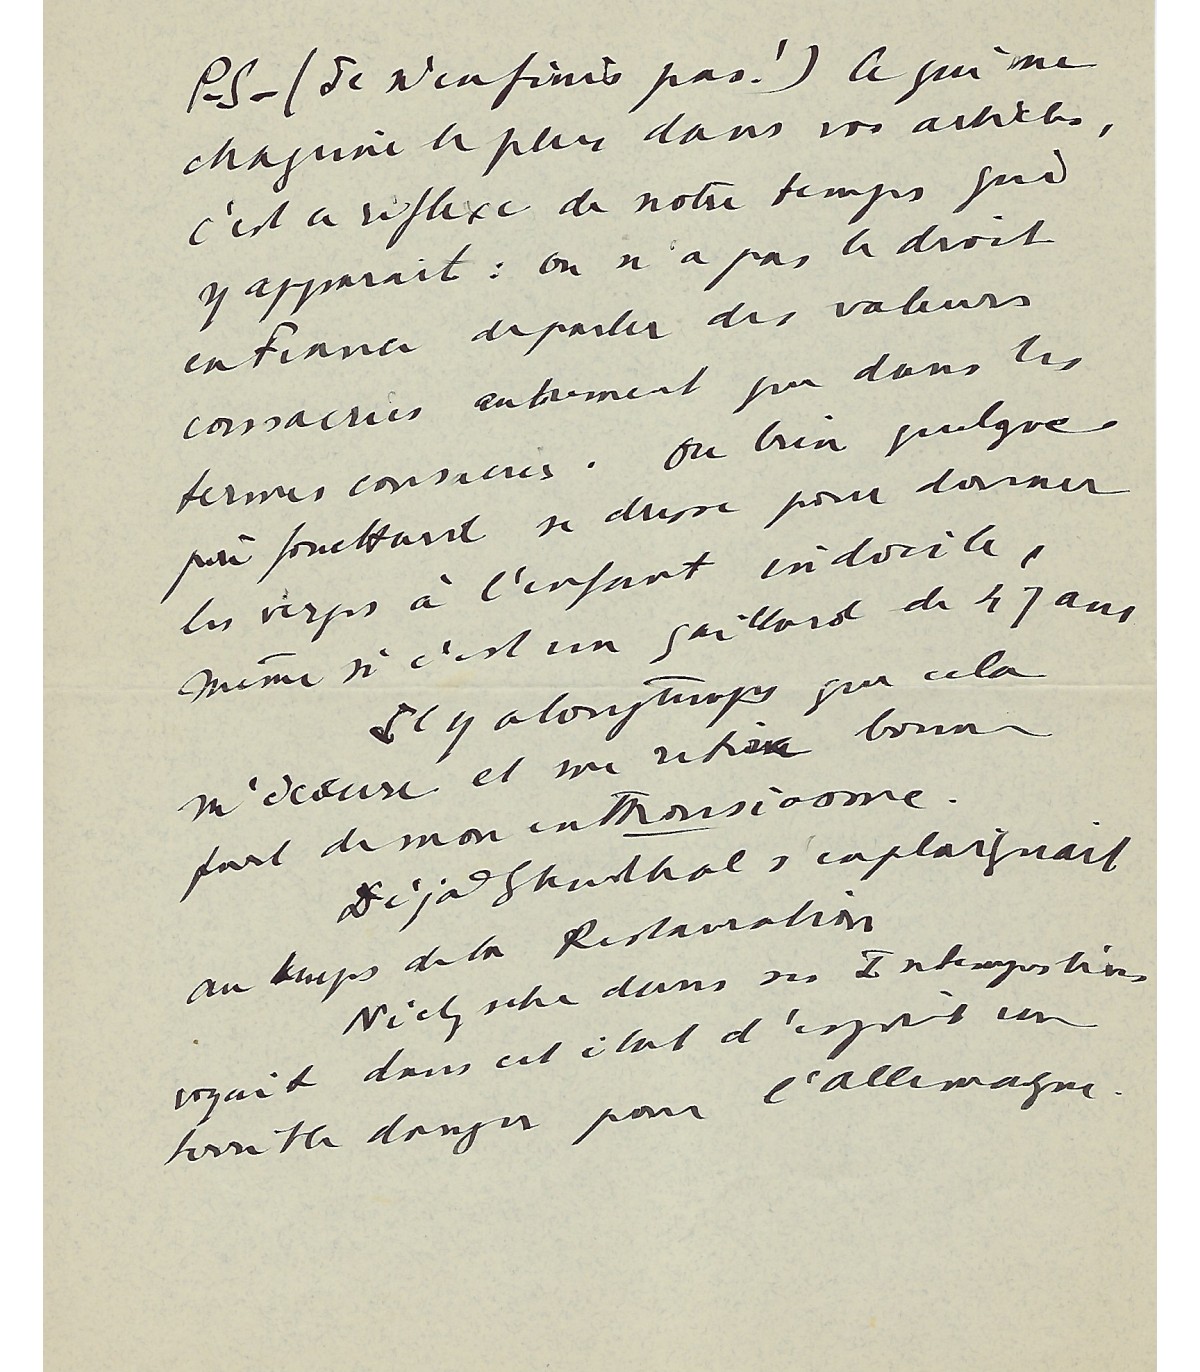 P.S- (Je n'en finis pas!) Ce qui me
chagrine le plus dans vos articles,
c'est ce réflexe de notre temps qui
y apparait : on n'a pas le droit
en France de parler des valeurs
consacrées autrement que dans les
termes consacrés. Ou bien quelque
père fouettard se dresse pour donner
les verges à l'enfant indocile,
même si c'est un gaillard de 47 ans
Il y a longtemps que cela
m'écœure et me retire bonne
part de mon enthousiasme.
Déjà Stendhal s'en plaignait
au temps de la Restauration
Nietzsche dans ses Intempestives
voyait dans cet état d'esprit un
terrible danger pour l'Allemagne.